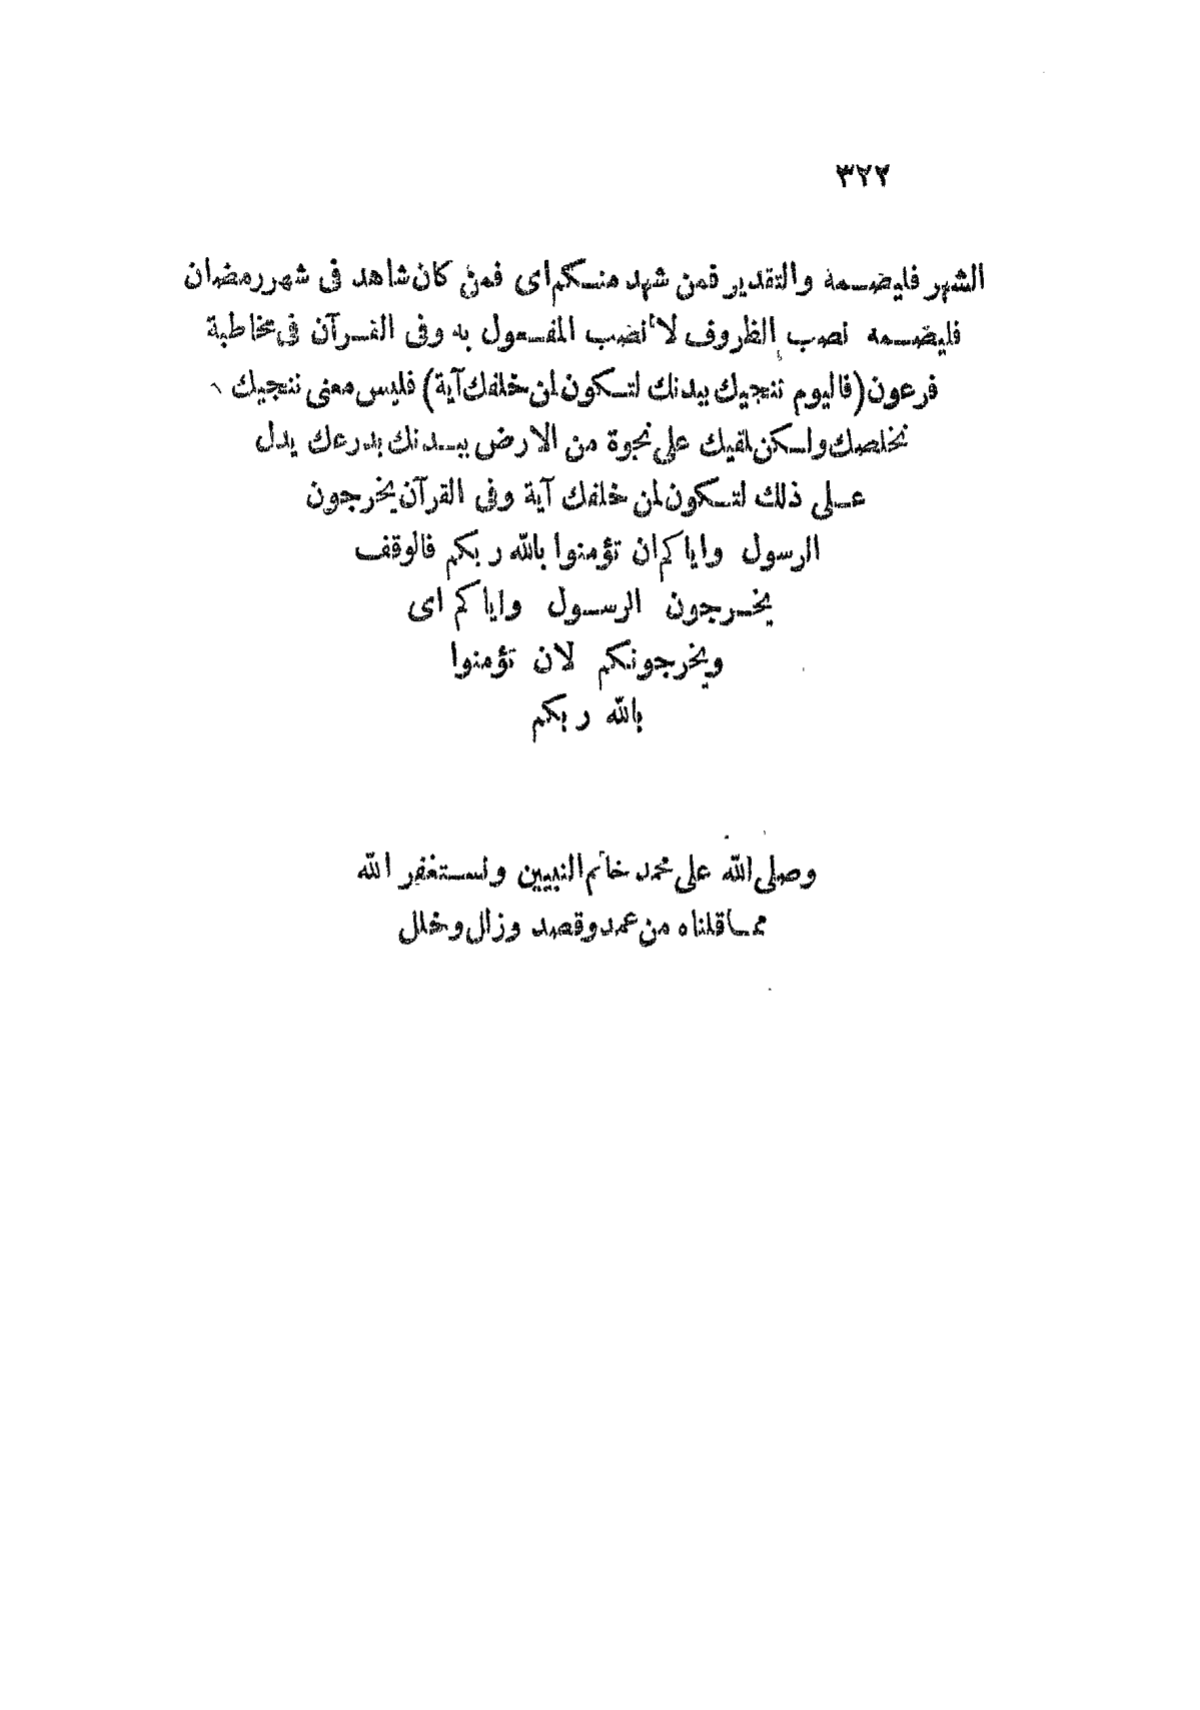 ٣٢٢
الشهر فليصمه والتقدير فمن شهد منكم اى فمن كان شاهد فى شهر رمضان
فليصمه نصب الظروف لا نصب المفعول به وفى القرآن فى مخاطبة
فرعون (فاليوم ننجيك ببدنك لتكون لمن خلفك آية) فليس معنى ننجيك
نخلصك ولكن نلقيك على نجوة من الارض ببدنك بدرعك يدل
على ذلك لتكون لمن خلفك آية وفى القرآن يخرجون
الرسول واياكم ان تؤمنوا بالله ربكم فالوقف
يخرجون الرسول واياكم اى
ويخرجونكم لان تؤمنوا
بالله ربكم
وصلى الله على محمد خاتم النبيين ونستغفر الله
مما قلناه من عمد وقصد وزلل وخلل